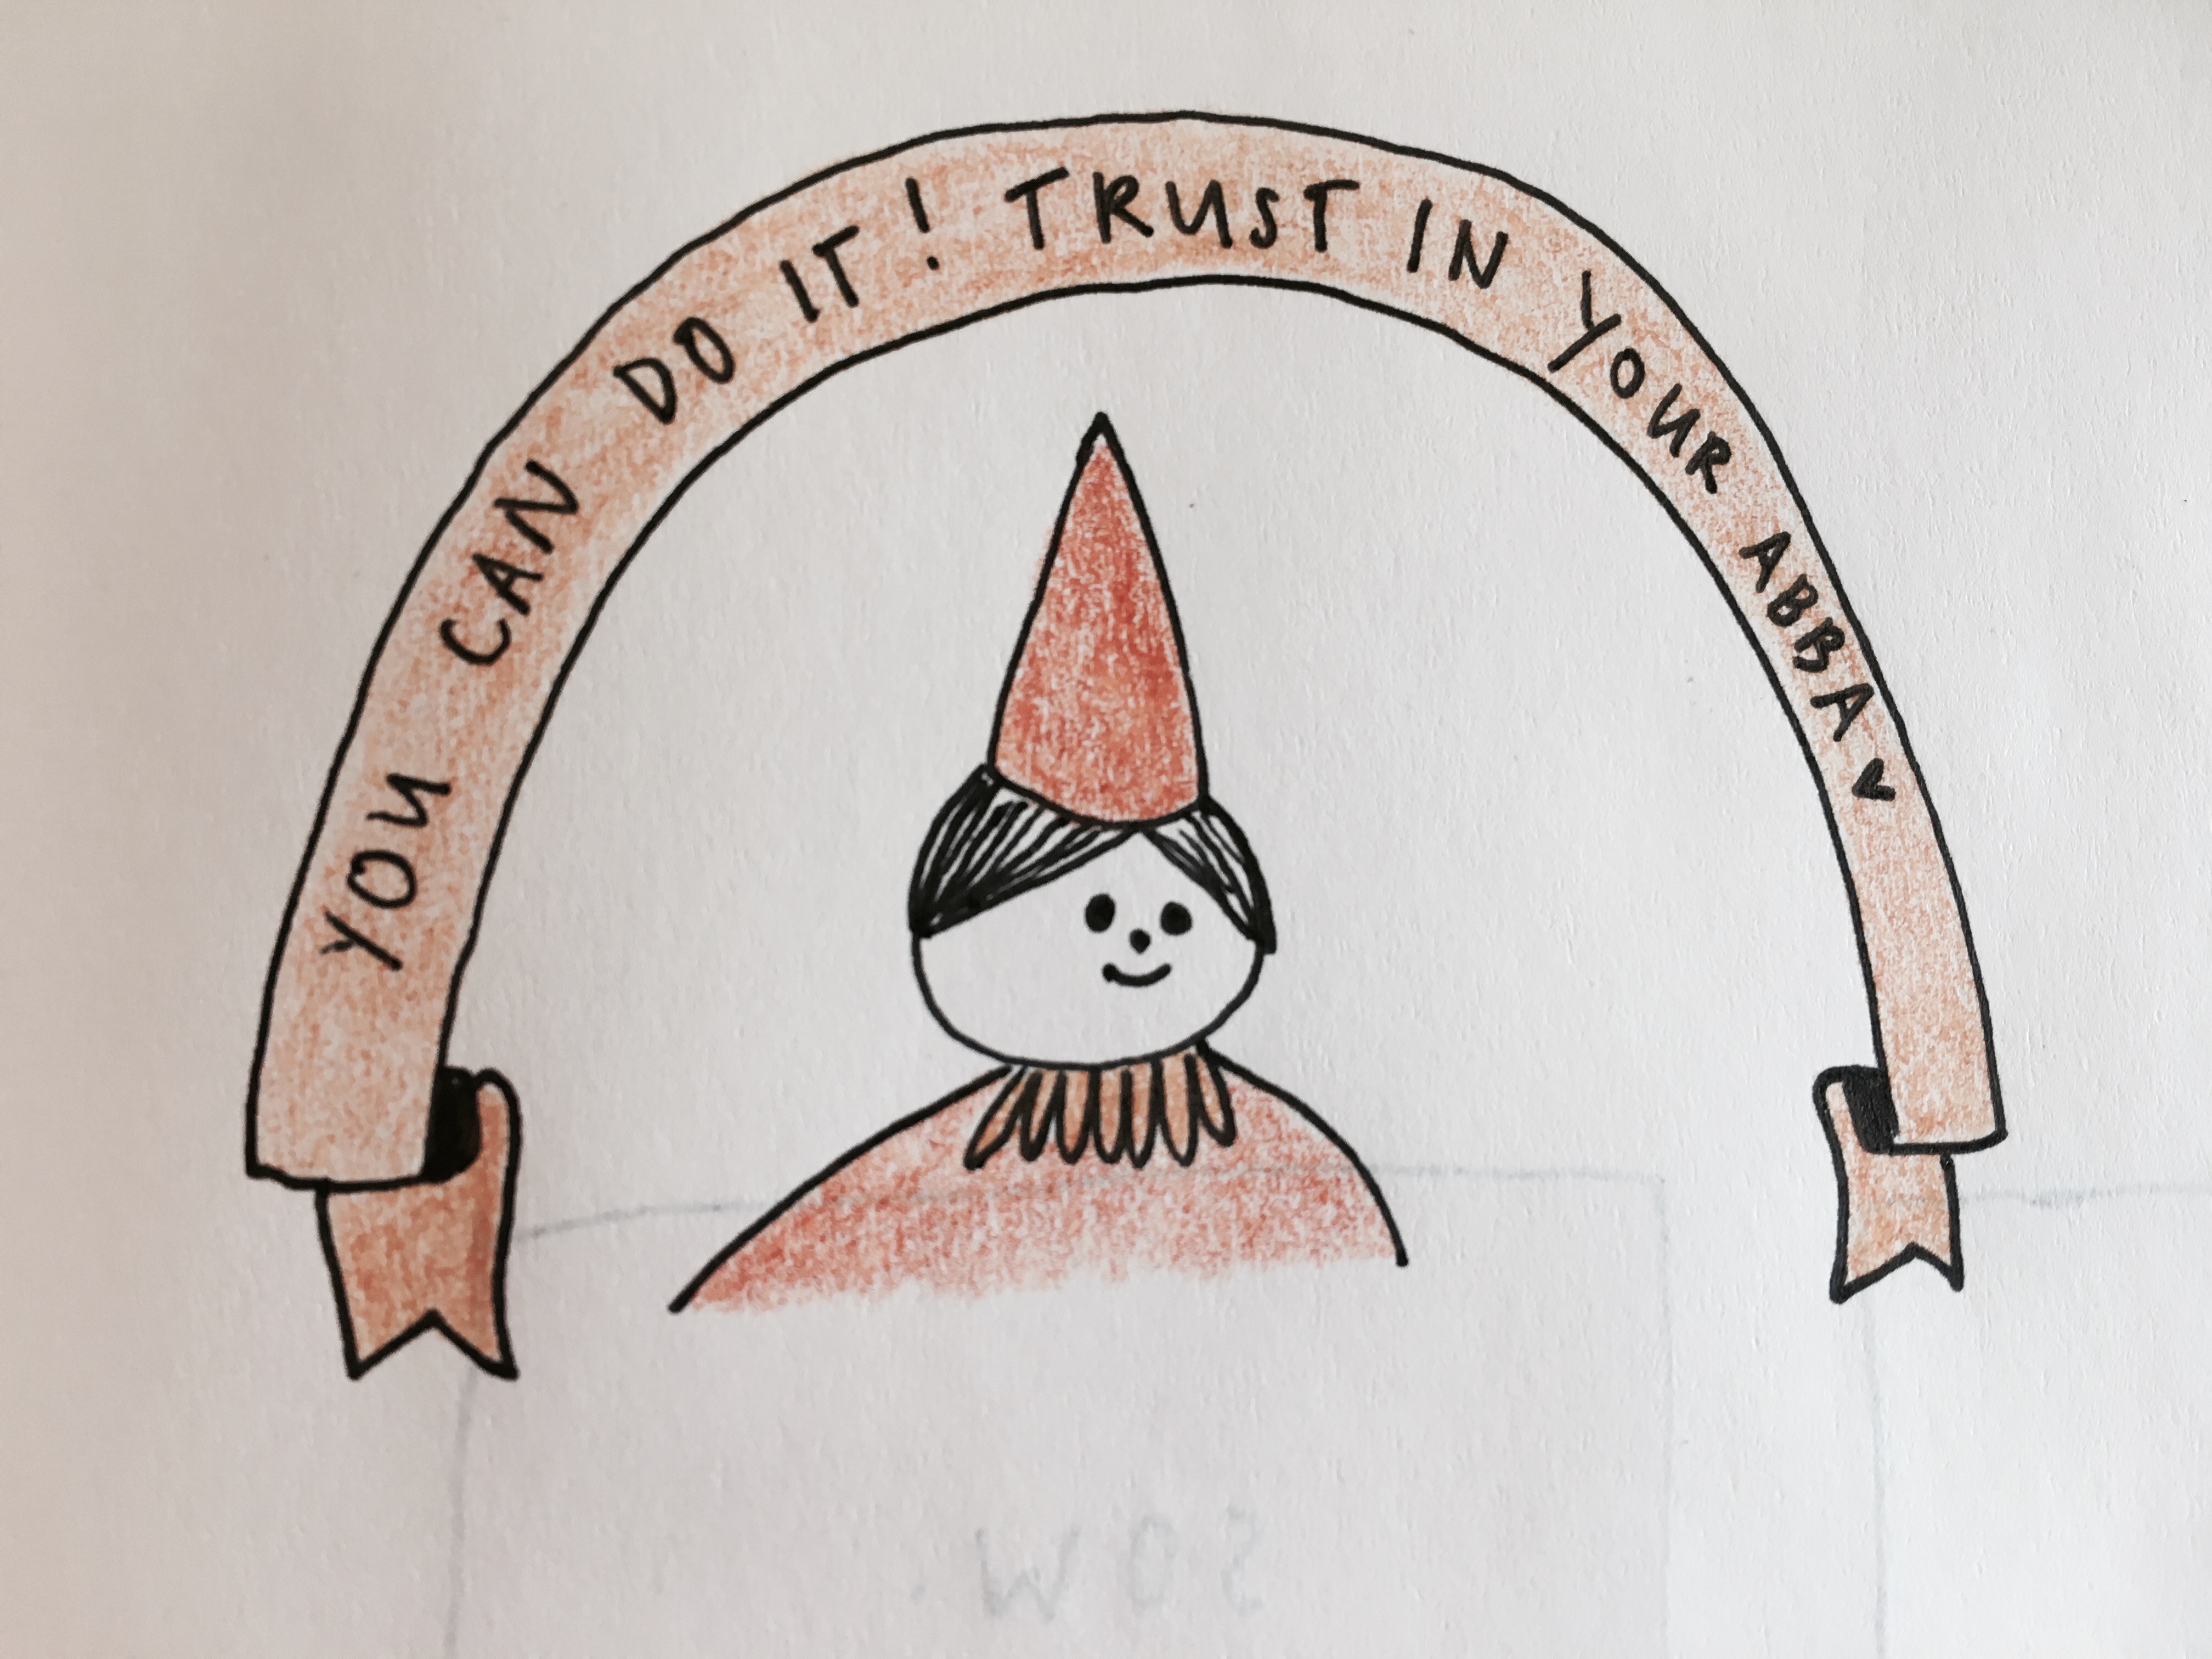 YOU CAN DO IT! TRUST IN YOUR ABBA ♥